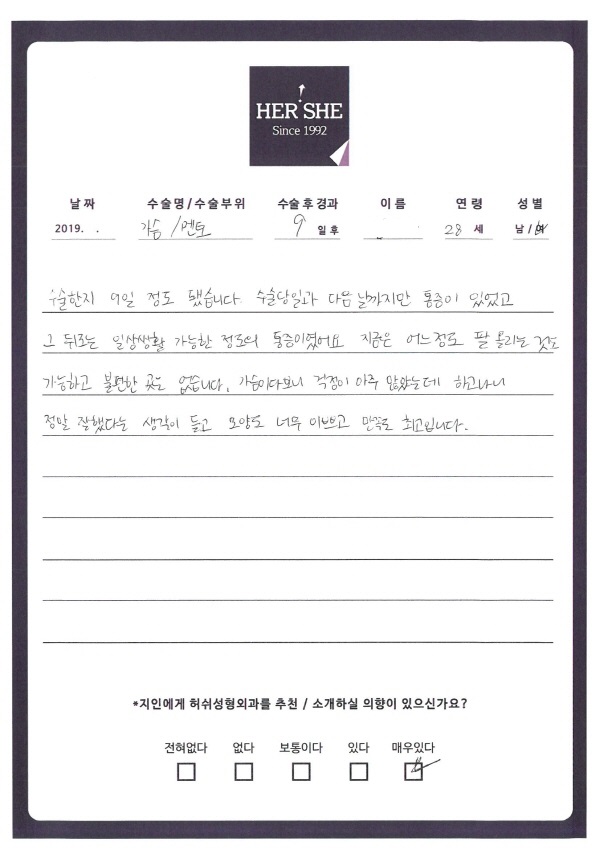 HER SHE
Since 1992
날짜 수술명/수술부위 수술 후 경과 이름 연령 성별
2019. . 가슴/멘토 9 일 후 . 28 세 남/여
수술한지 9일 정도 됐습니다. 수술당일과 다음날까지만 통증이 있었고
그 뒤로는 일상생활 가능한 정도의 통증이였어요 지금은 어느정도 팔 올리는 것도
가능하고 불편한 곳은 없습니다. 가슴이다보니 걱정이 아주 많았는데 하고나니
정말 잘했다는 생각이 들고 모양도 너무 이쁘고 만족도 최고입니다.
*지인에게 허쉬성형외과를 추천 / 소개하실 의향이 있으신가요?
전혀없다 없다 보통이다 있다 매우있다